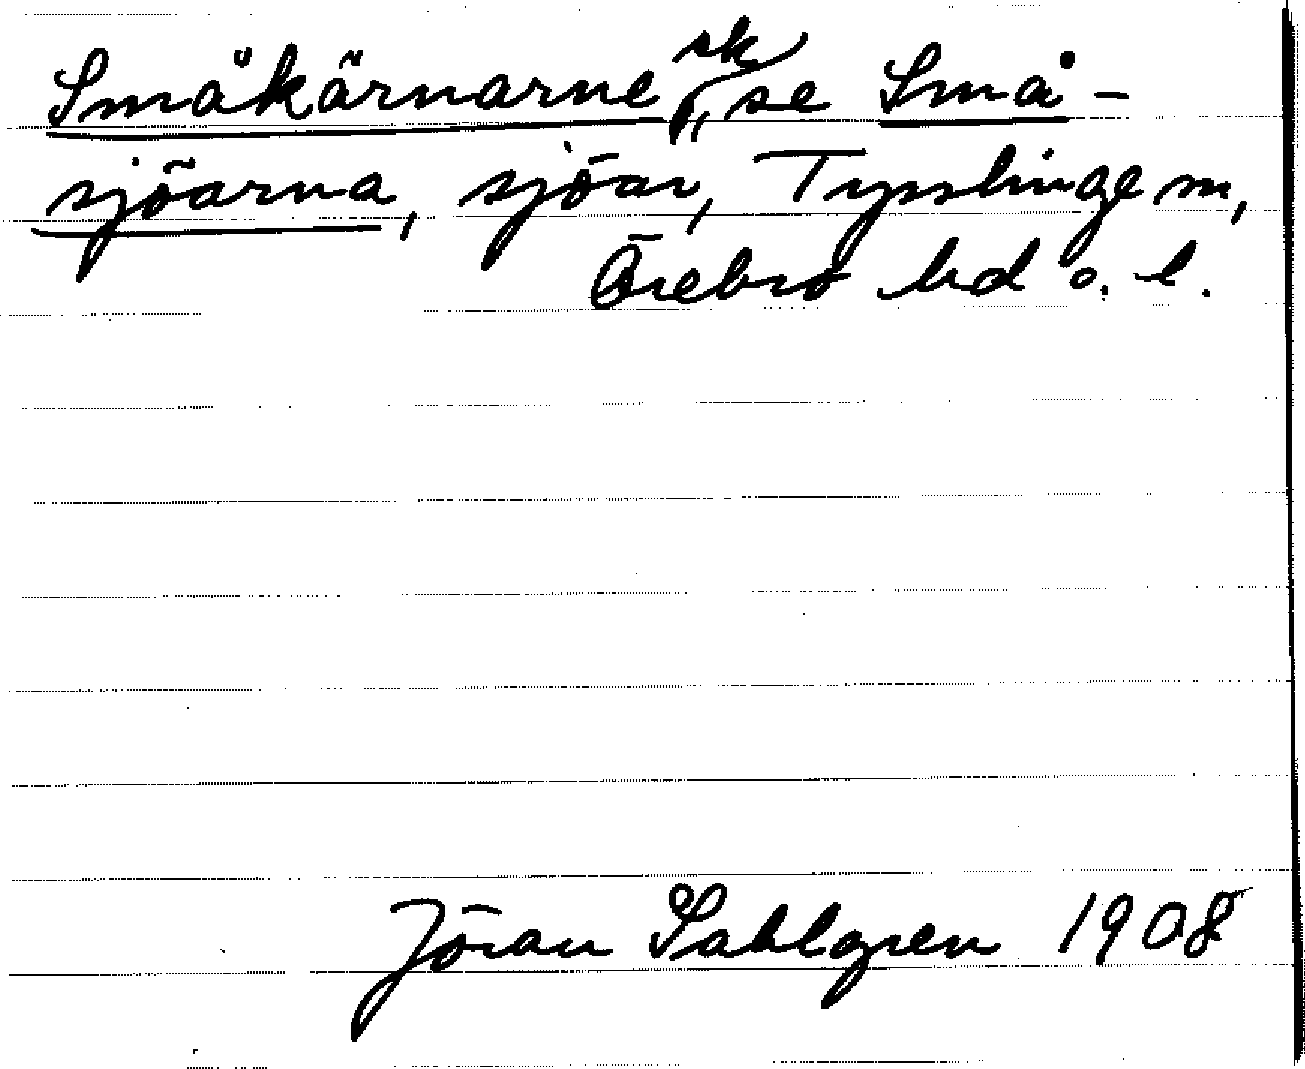 Småkärnarne, sk, se Små-
sjöarna, sjöar, Tysslinge sn,
Örebro hd o. l.
Jöran Sahlgren 1908